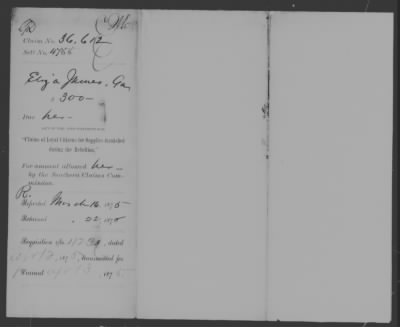 Claim No. 36.612
Sett No. 4755
Eliza James, Ga
$300—
Due her—
"Claims of Loyal Citizens for Supplies furnished
during the Rebellion."
For amount allowed her
by the Southern Claims Com-
mission.
R.
Reported March 16, 1875
Returned " 22, 1875
Requisition No. dated
1875, transmitted for
1875